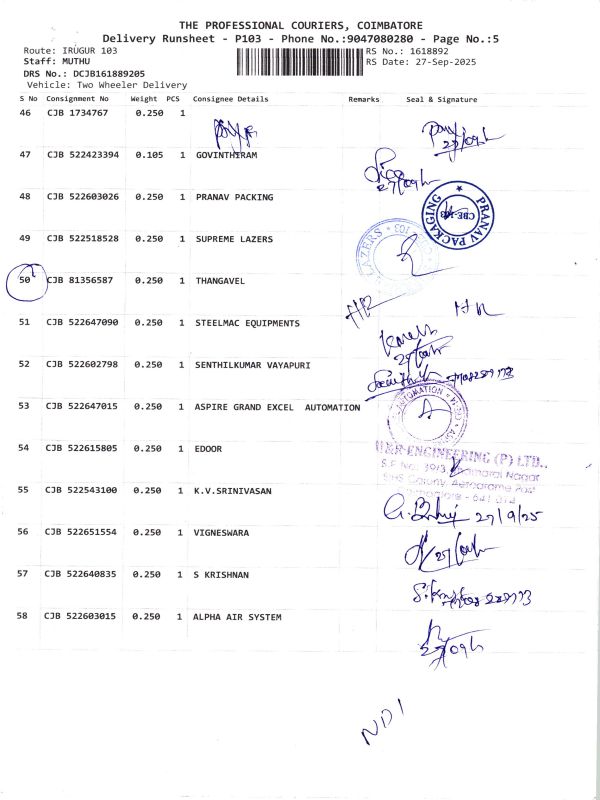 THE PROFESSIONAL COURIERS, COIMBATORE
Delivery Runsheet - P103 - Phone No.:9047080280 - Page No.:5
Route: IRUGUR 103
RS No.: 1618892
Staff: MUTHU
RS Date: 27-Sep-2025
DRS No.: DCJB161889205
Vehicle: Two Wheeler Delivery
S No Consignment No Weight PCS Consignee Details Remarks Seal & Signature
46 CJB 1734767 0.250 1
27/09/
47 CJB 522423394 0.105 1 GOVINTHIRAM
27/09/
48 CJB 522603026 0.250 1 PRANAV PACKING
PRANAV PACKAGING
CBE-103
49 CJB 522518528 0.250 1 SUPREME LAZERS
LAZERS
103
50 CJB 81356587 0.250 1 THANGAVEL
51 CJB 522647090 0.250 1 STEELMAC EQUIPMENTS
27/09/
52 CJB 522602798 0.250 1 SENTHILKUMAR VAYAPURI
53 CJB 522647015 0.250 1 ASPIRE GRAND EXCEL AUTOMATION
AUTOMATION
54 CJB 522615805 0.250 1 EDOOR
ENGINEERING (P) LTD.,
S.F. No: Nagar
SIHS Colony, Aerodrome Post
641 014
55 CJB 522543100 0.250 1 K.V.SRINIVASAN
27/9/25
56 CJB 522651554 0.250 1 VIGNESWARA
27/09/
57 CJB 522640835 0.250 1 S KRISHNAN
58 CJB 522603015 0.250 1 ALPHA AIR SYSTEM
27/09/
NDI